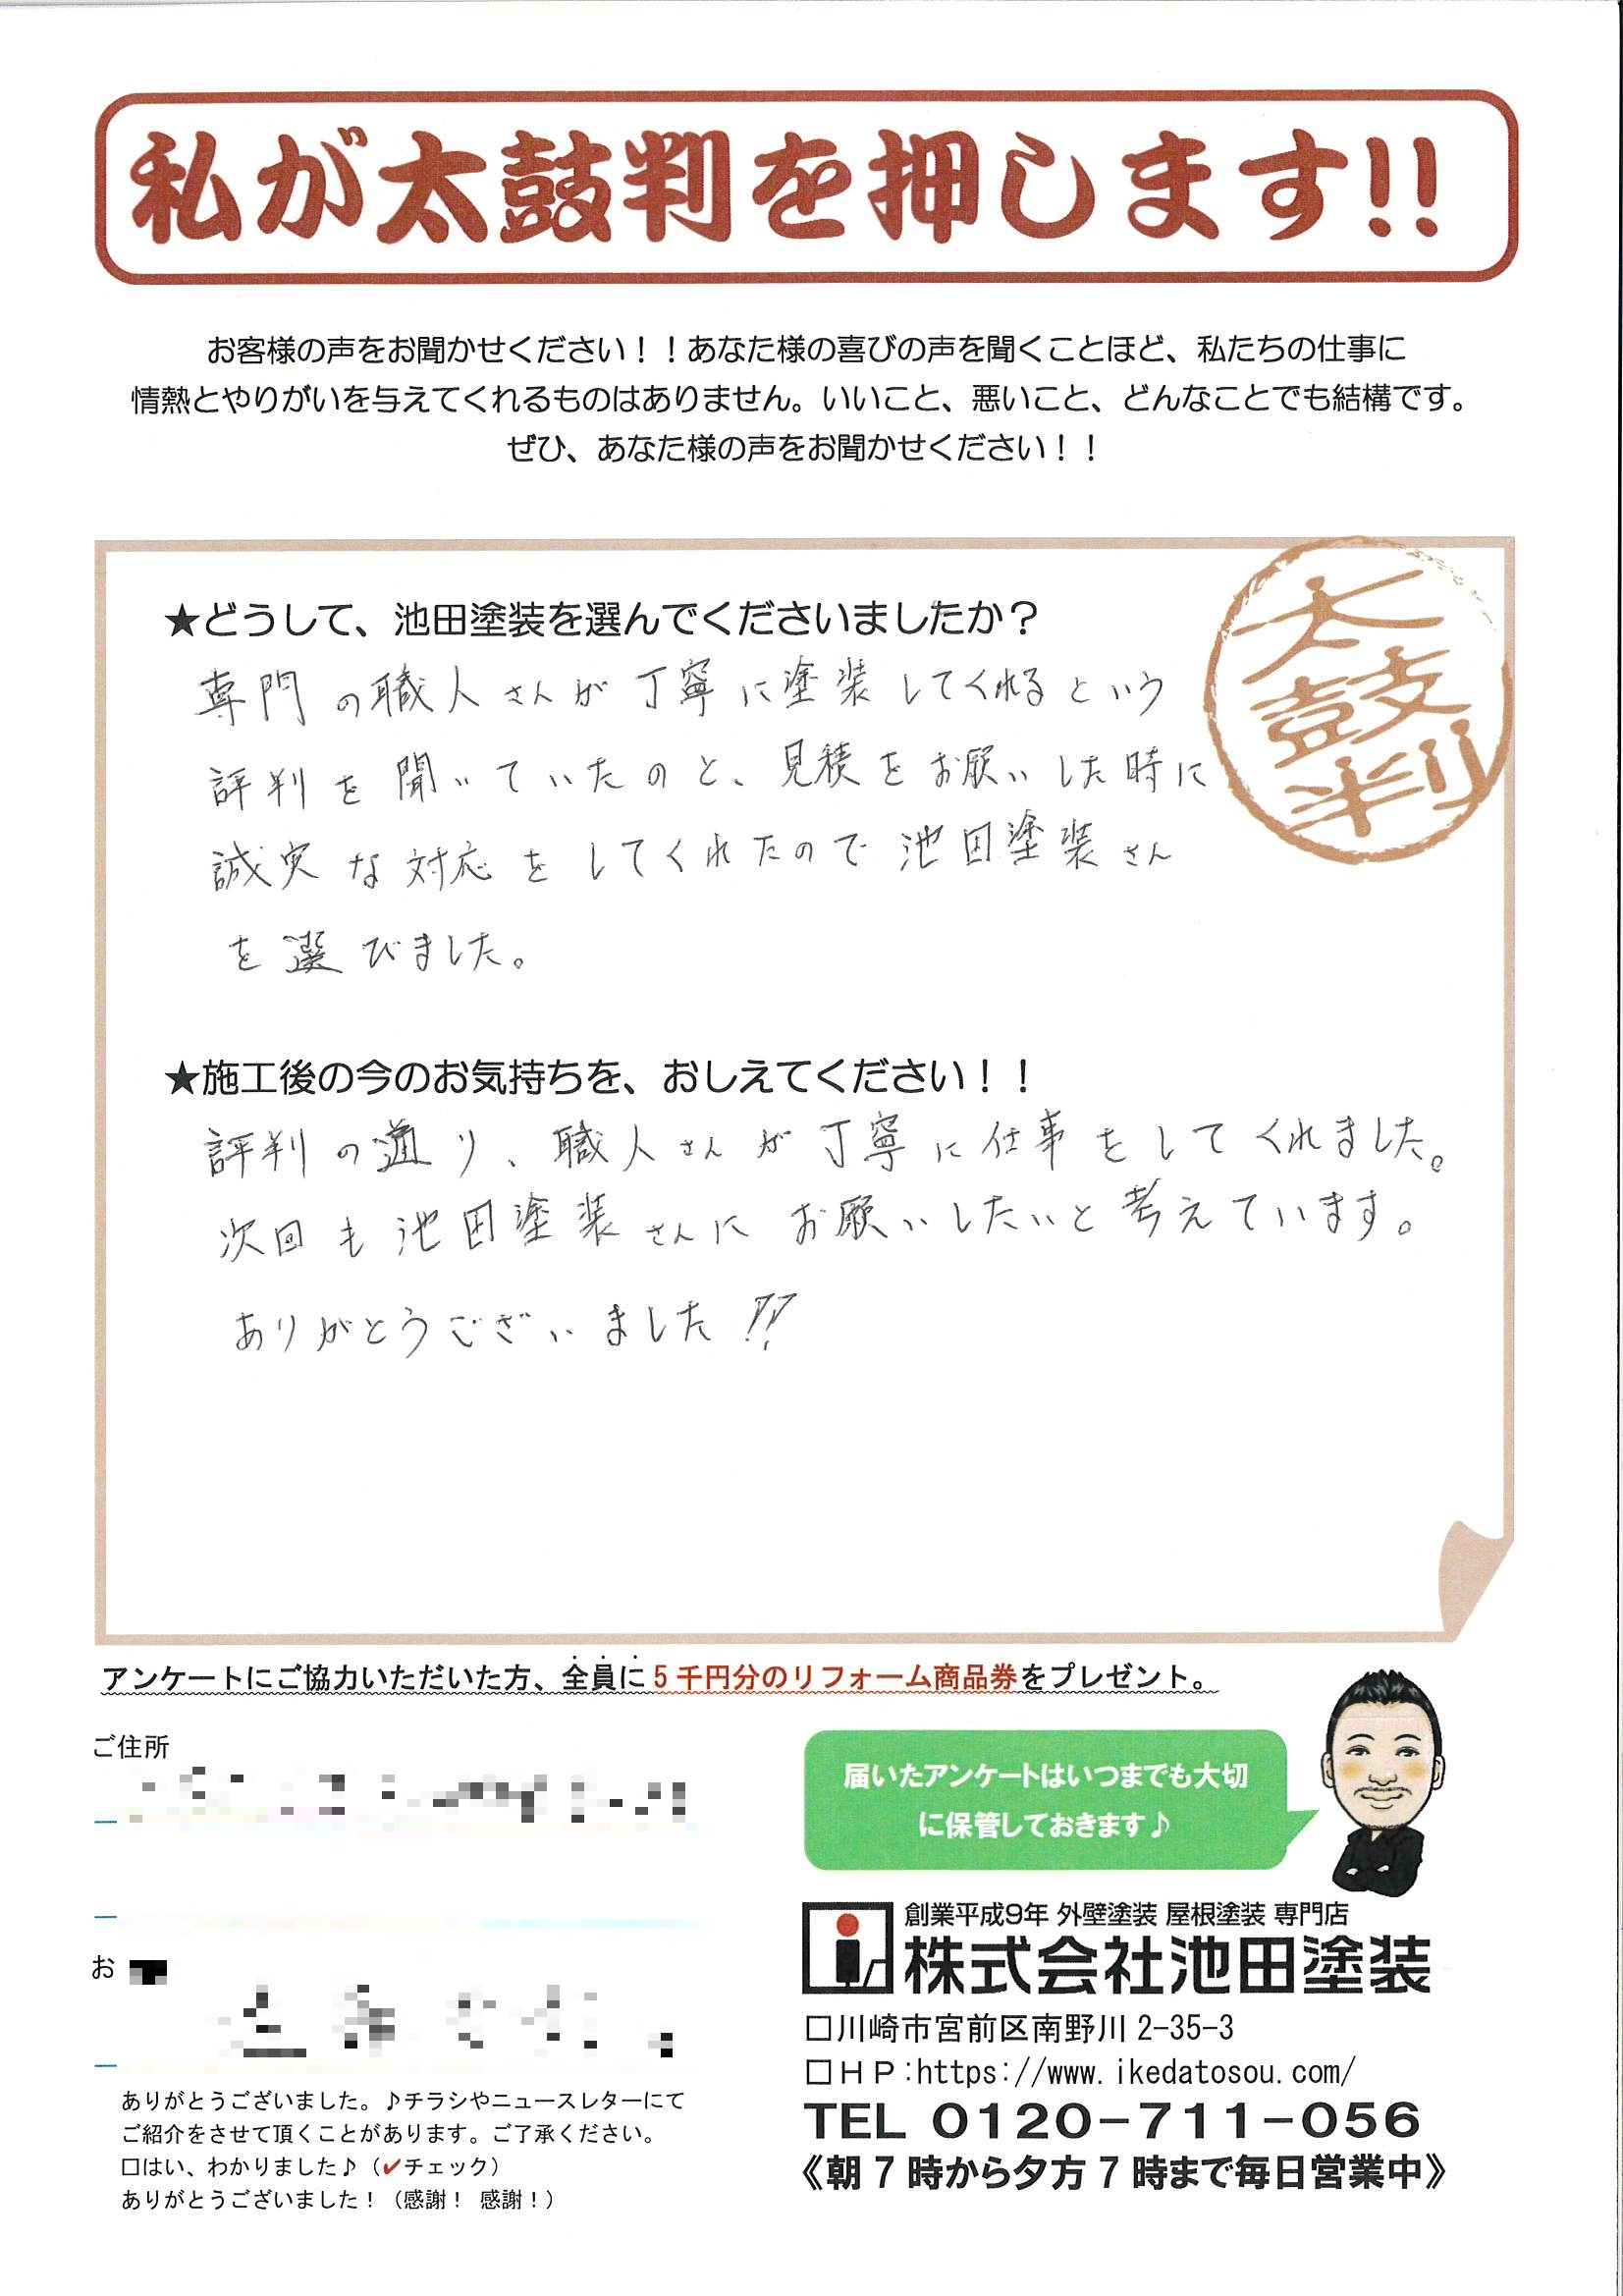 私が太鼓判を押します!!
お客様の声をお聞かせください！！あなた様の喜びの声を聞くことほど、私たちの仕事に
情熱とやりがいを与えてくれるものはありません。いいこと、悪いこと、どんなことでも結構です。
ぜひ、あなた様の声をお聞かせください！！
太鼓判
★どうして、池田塗装を選んでくださいましたか？
専門の職人さんが丁寧に塗装してくれるという
評判を聞いていたのと、見積をお願いした時に
誠実な対応をしてくれたので池田塗装さん
を選びました。
★施工後の今のお気持ちを、おしえてください！！
評判の通り、職人さんが丁寧に仕事をしてくれました。
次回も池田塗装さんにお願いしたいと考えています。
ありがとうございました!!
アンケートにご協力いただいた方、全員に５千円分のリフォーム商品券をプレゼント。
ご住所
お
ありがとうございました。♪チラシやニュースレターにて
ご紹介をさせて頂くことがあります。ご了承ください。
□はい、わかりました♪（✔チェック）
ありがとうございました！（感謝！ 感謝！）
届いたアンケートはいつまでも大切
に保管しておきます♪
創業平成9年 外壁塗装 屋根塗装 専門店
株式会社池田塗装
□川崎市宮前区南野川 2-35-3
□ＨＰ:https://www.ikedatosou.com/
TEL 0120-711-056
《朝７時から夕方７時まで毎日営業中》